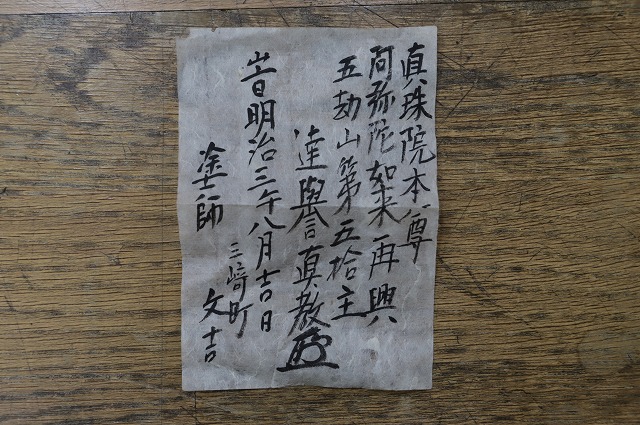 真珠院本尊
阿弥陀如来再興
五劫山第五拾主
達譽真教
旹明治三年八月吉日
三﨑町
塗師 文吉